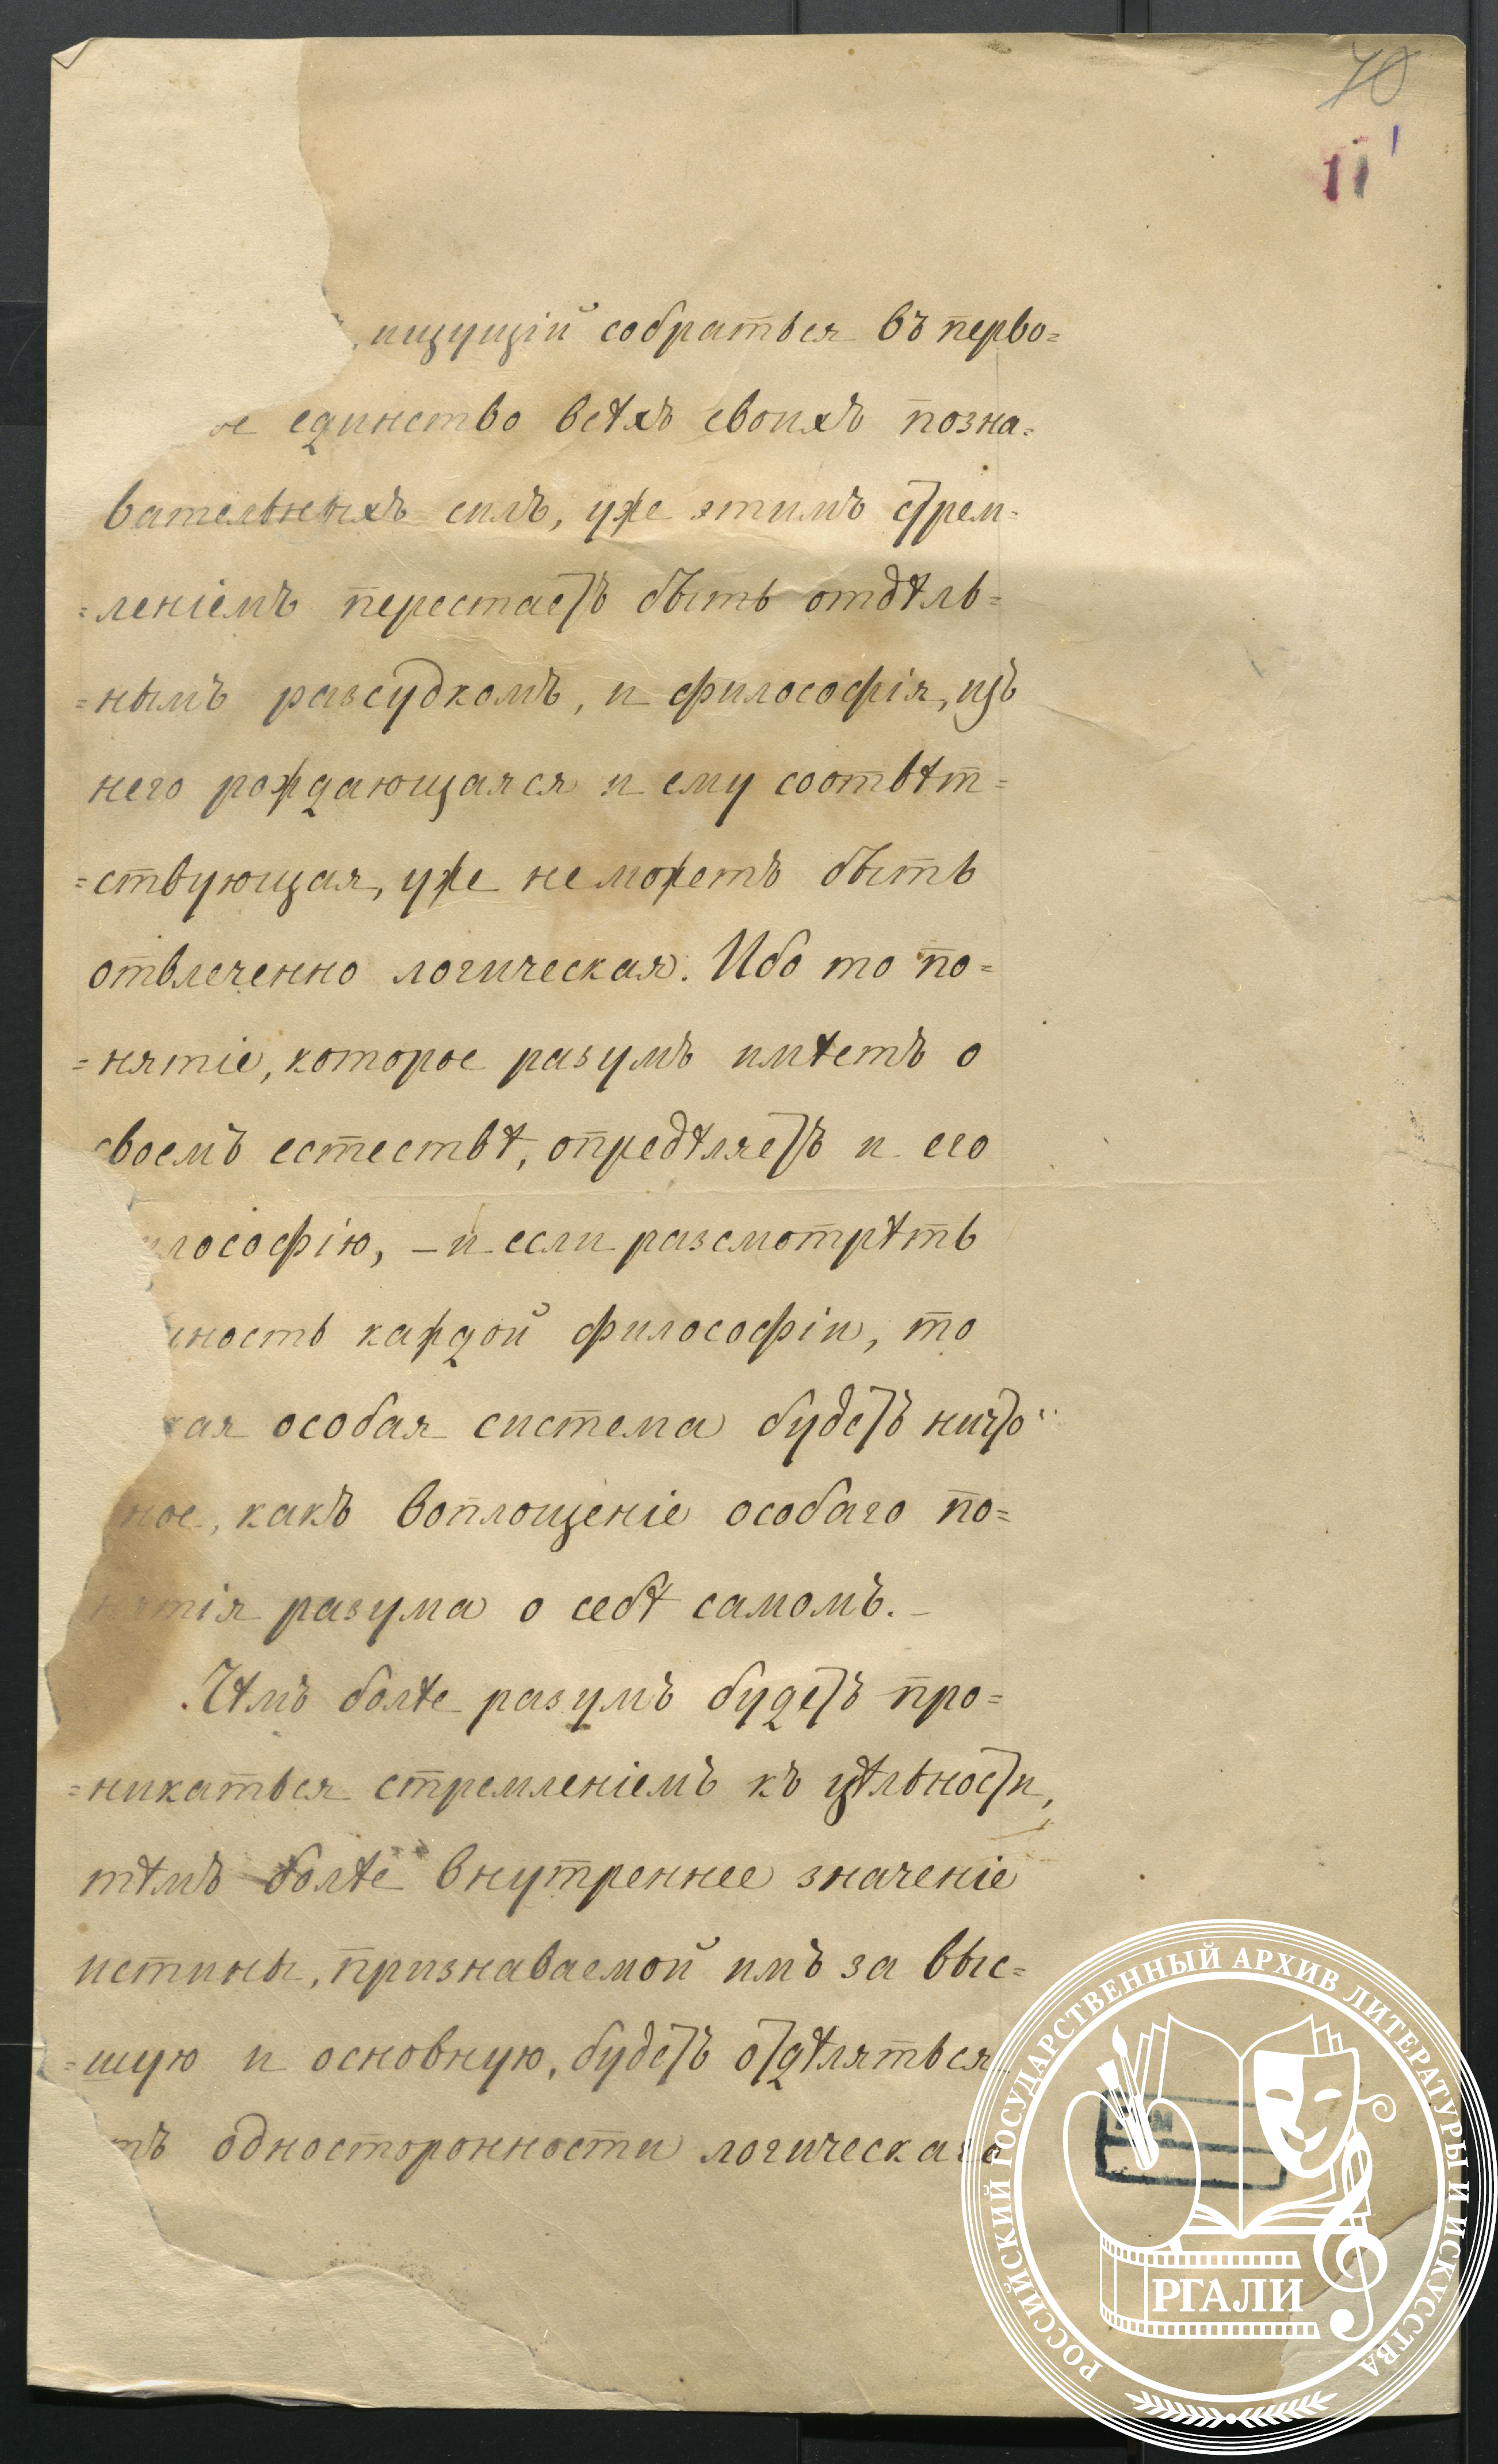 70
11
ищущій собраться въ перво=
единство всѣхъ своихъ позна=
вательныхъ силъ, уже этимъ стрем=
=леніемъ перестаетъ быть отдѣль=
=нымъ разсудкомъ, и философія, изъ
него рождающаяся и ему соотвѣт=
=ствующая, уже не можетъ быть
отвлеченно логическая. Ибо то по=
=нятіе, которое разумъ имѣетъ о
своемъ естествѣ, опредѣляетъ и его
илософію, – и если разсмотрѣть
ность каждой философіи, то
кая особая система будетъ ничто
ное, какъ воплощеніе особаго по=
нятія разума о себѣ самомъ. –
Чѣмъ болѣе разумъ будетъ про=
=никаться стремленіемъ къ цѣльности,
тѣмъ болѣе внутреннее значеніе
истины, признаваемой имъ за выс=
=шую и основную, будетъ отдѣляться
тъ односторонности логическаго
РОССИЙСКИЙ ГОСУДАРСТВЕННЫЙ АРХИВ ЛИТЕРАТУРЫ И ИСКУССТВА
РГАЛИ